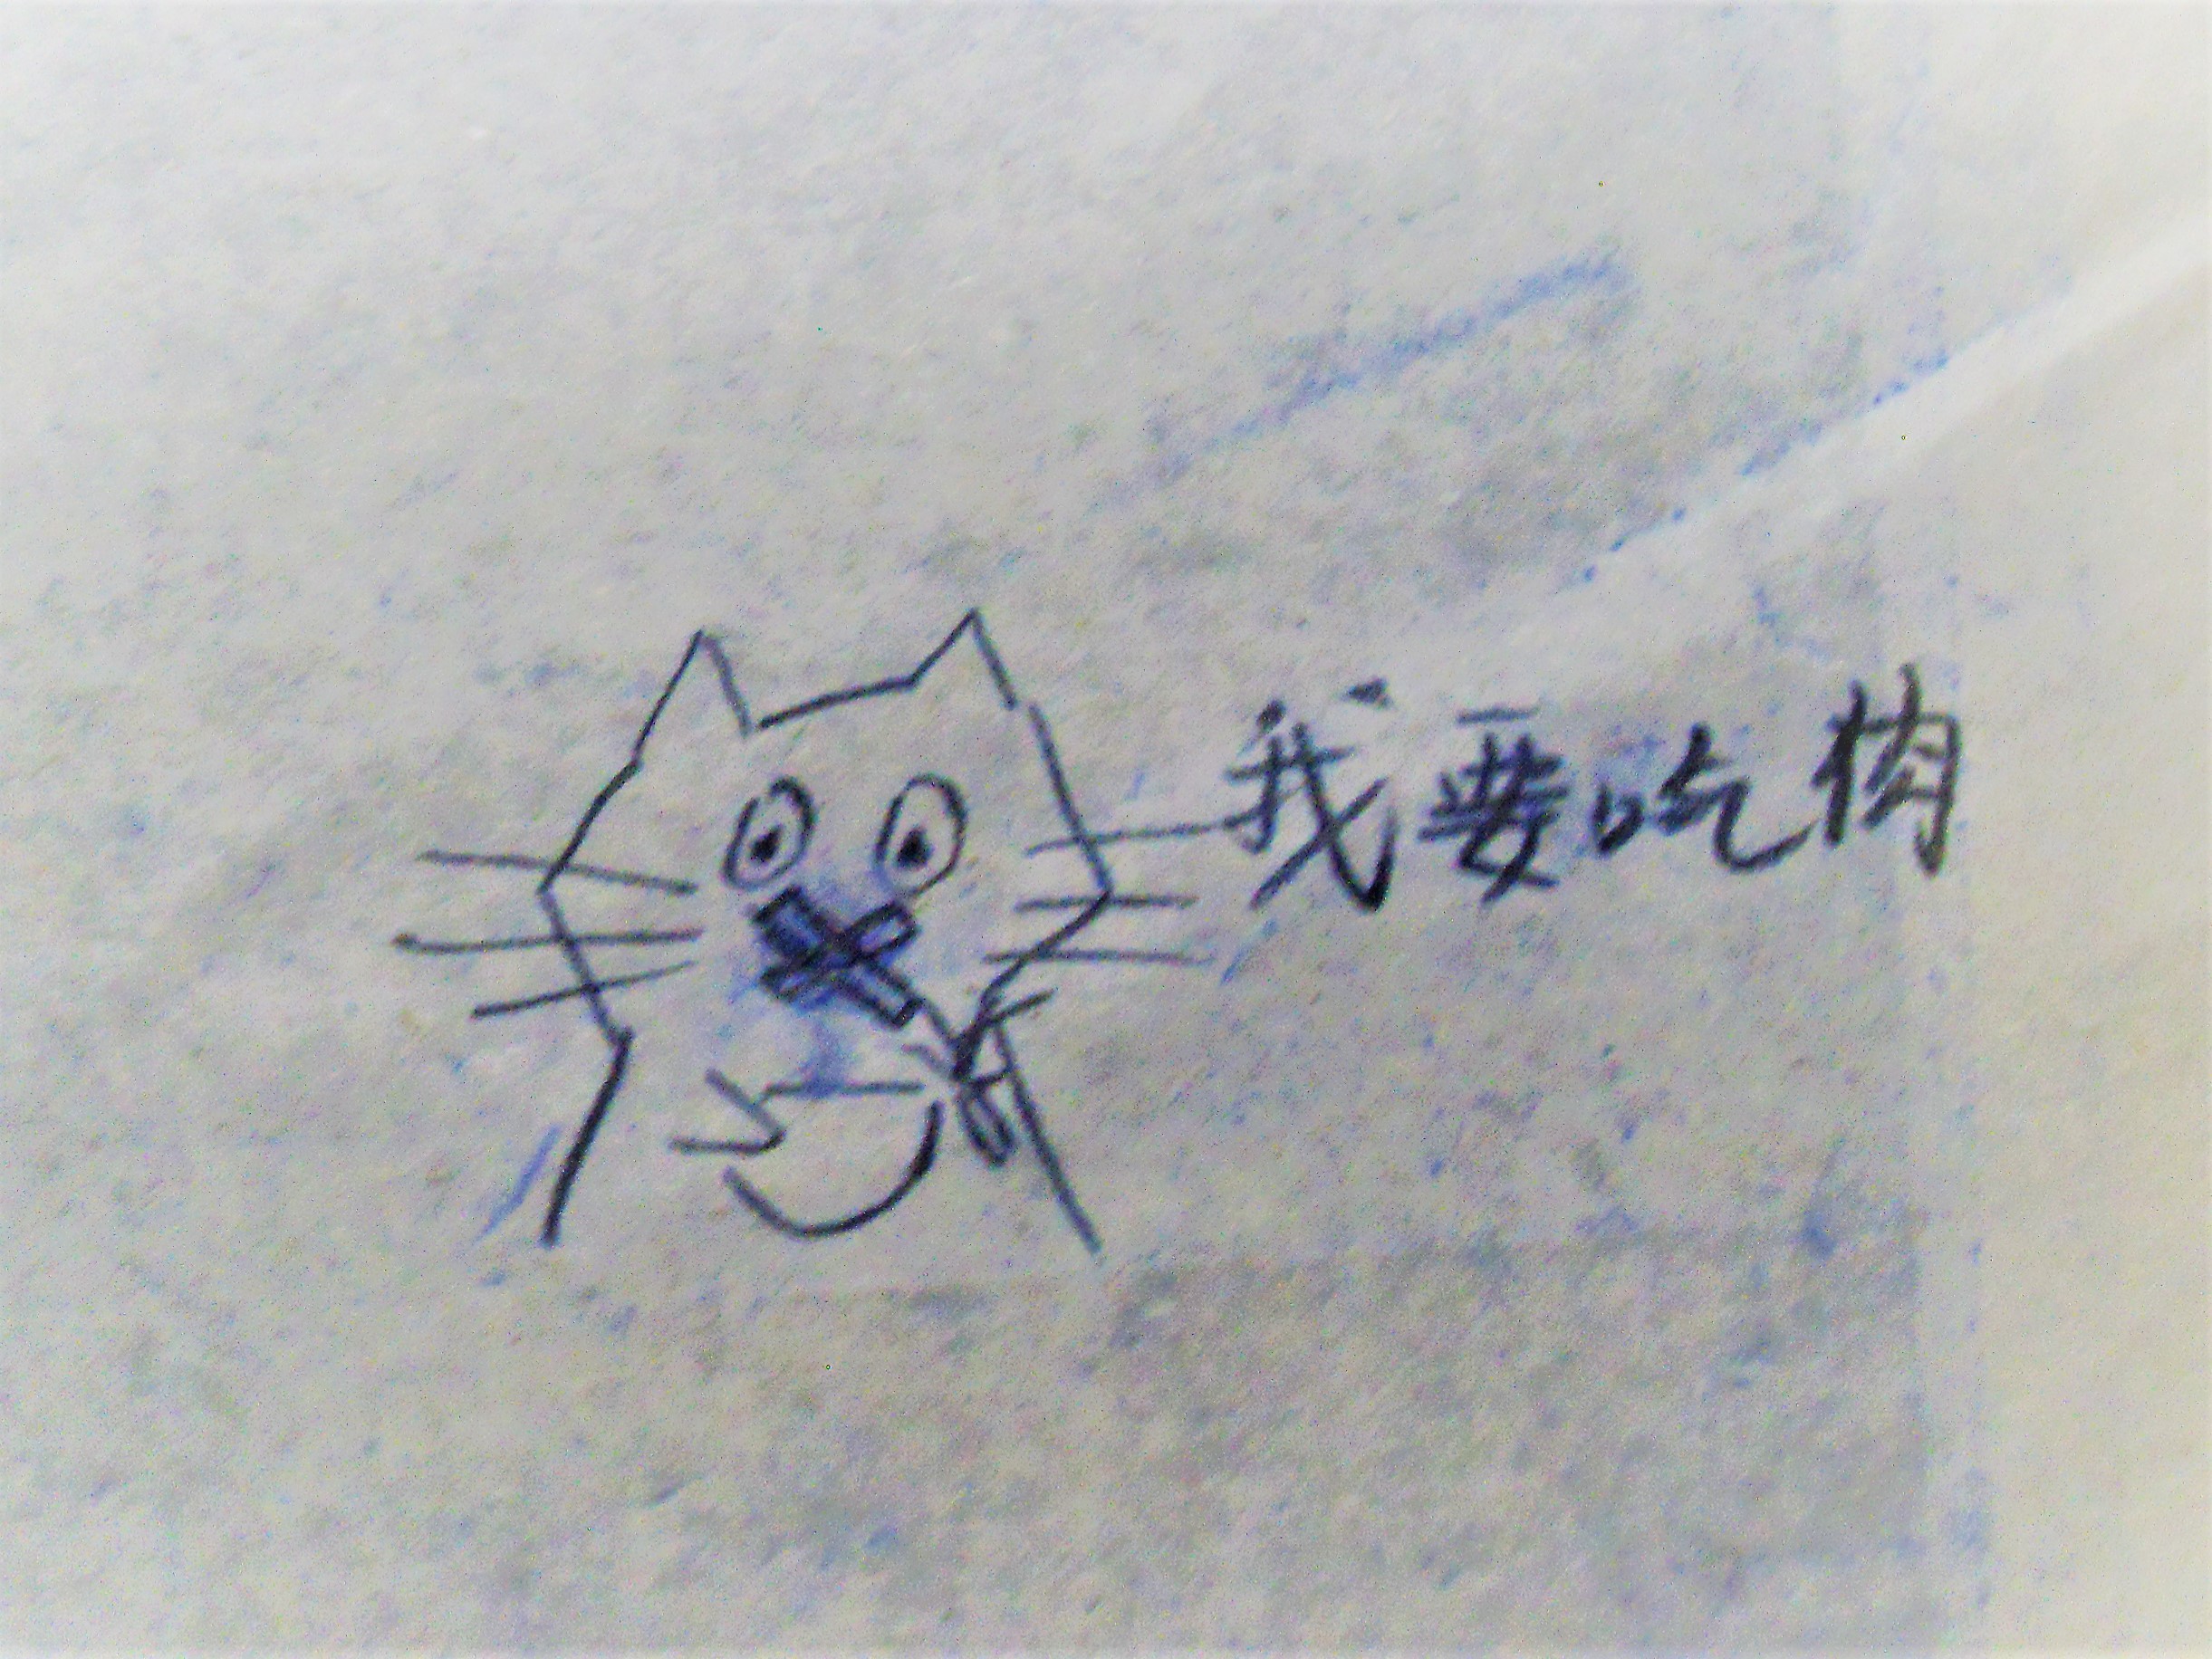 我要吃肉